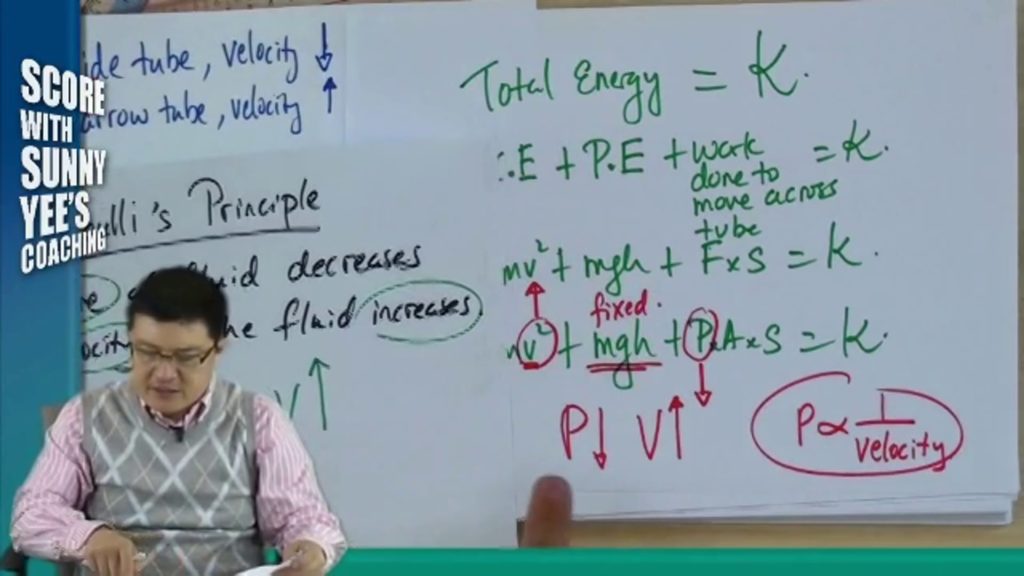 SCORE
WITH
SUNNY
YEE'S
COACHING
ide tube, velocity ↓
arrow tube, velocity ↑
ulli's Principle
fluid decreases
the fluid increases
ocity
V ↑
Total Energy = K.
.E + P.E + work done to move across tube = K.
mv² + mgh + F x S = K.
fixed.
v² + mgh + P x A x S = K.
P↓ V↑
P ∝ 1/velocity